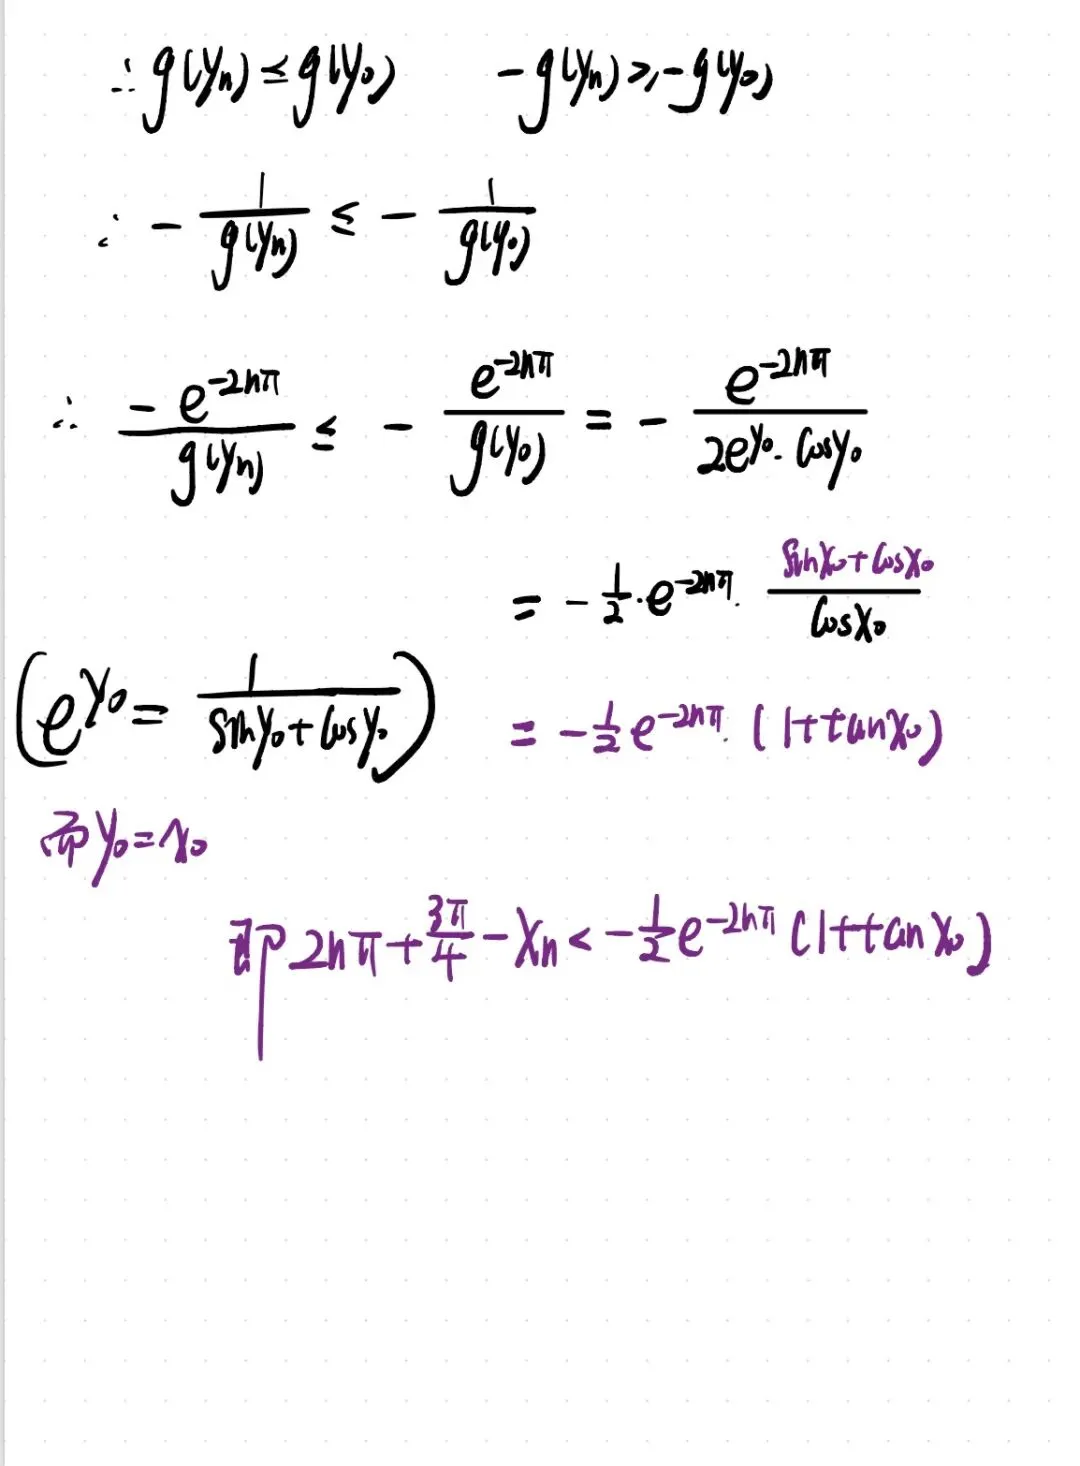 ∴ g(yₙ) ≤ g(y₀)   -g(yₙ) ≥ -g(y₀)
∴ - 1/g(yₙ) ≤ - 1/g(y₀)
∴ -e^{-2nπ}/g(yₙ) ≤ - e^{-2nπ}/g(y₀) = - e^{-2nπ}/(2e^{y₀}·cosy₀)
= -1/2·e^{-2nπ}·(sinx₀+cosx₀)/cosx₀
(e^{y₀} = 1/(siny₀+cosy₀))   = -1/2 e^{-2nπ}·(1+tanx₀)
而y₀=x₀
即 2nπ + 3π/4 - xₙ < -1/2 e^{-2nπ} (1+tanx₀)